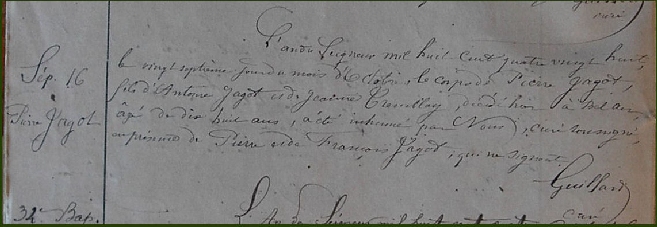 curé
L'an du Seigneur mil huit cent quatre vingt huit,
Sép. 16
le vingt septième jour du mois d'Octobre, le corps de Pierre Jagot,
fils d'Antoine Jagot et de Jeanne, décédé hier à
Pierre Jagot
âgé de dix huit ans, a été inhumé par Nous, curé soussigné,
en présence de Pierre et de François Jagot, qui ne signent
Guillard
curé
32e Bap.
L'An du Seigneur mil huit cent quatre